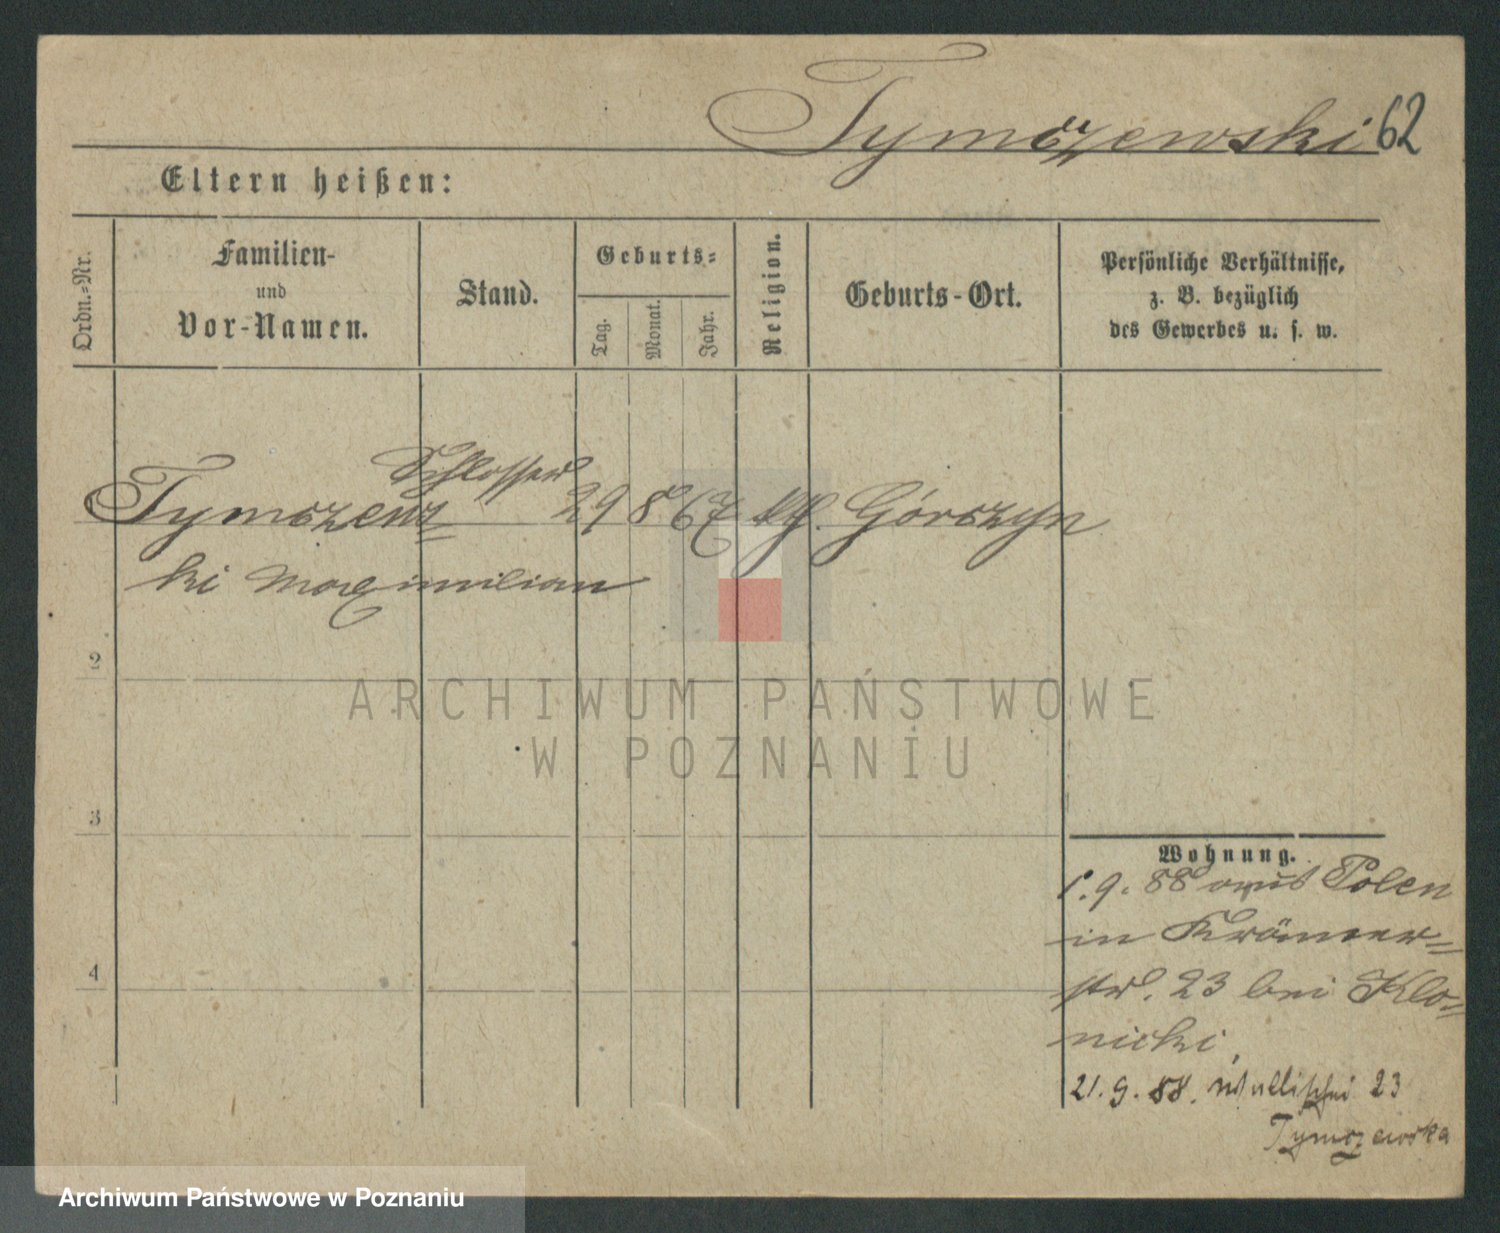 Tymczewski 62
Eltern heißen:
Ordn.-Nr.
Familien-
und
Vor-Namen.
Stand.
Geburts-
Tag.
Monat.
Jahr.
Religion.
Geburts-Ort.
Persönliche Verhältnisse,
z. B. bezüglich
des Gewerbes u. s. w.
Schlosser
Tymczews= 29 8 67 kth. Górczyn
ki Maximilian
2
3
4
ARCHIWUM PAŃSTWOWE
W POZNANIU
Wohnung.
1.9.88 aus Polen
in Krämer=
str. 23 bei Klo=
nicki
21.9.88. Wallischei 23
Tymczewska
Archiwum Państwowe w Poznaniu